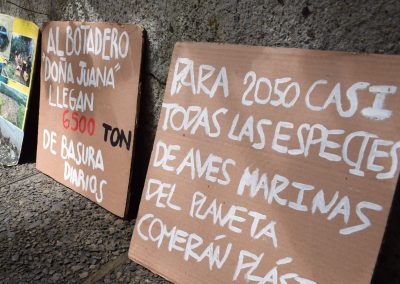 AL BOTADERO
"DOÑA JUANA"
LLEGAN
6500 TON
DE BASURA
DIARIOS
PARA 2050 CASI
TODAS LAS ESPECIES
DE AVES MARINAS
DEL PLANETA
COMERÁN PLÁST